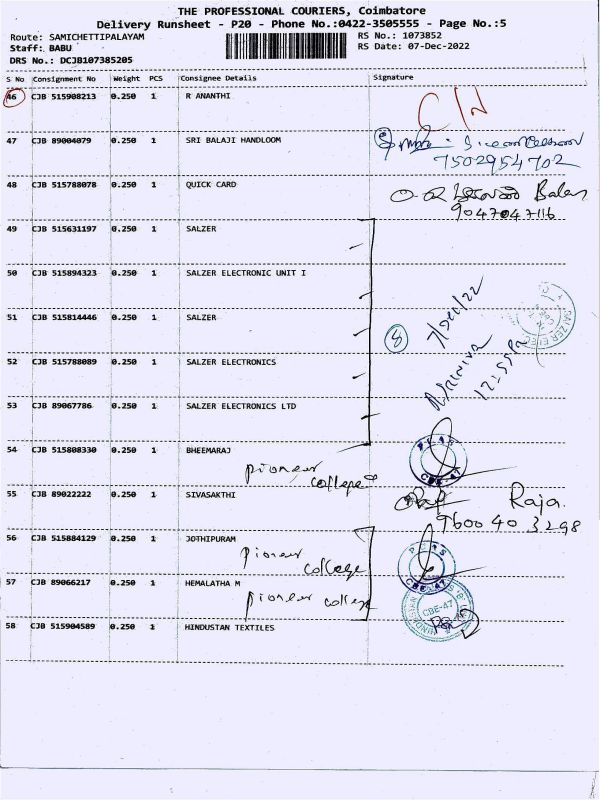 THE PROFESSIONAL COURIERS, Coimbatore
Delivery Runsheet - P20 - Phone No.:0422-3505555 - Page No.:5
Route: SAMICHETTIPALAYAM
RS No.: 1073852
Staff: BABU
RS Date: 07-Dec-2022
DRS No.: DCJB107385205
S No Consignment No Weight PCS Consignee Details Signature
46 CJB 515908213 0.250 1 R ANANTHI C/N
47 CJB 89004079 0.250 1 SRI BALAJI HANDLOOM
7502954702
48 CJB 515788078 0.250 1 QUICK CARD Balan
9047047116
49 CJB 515631197 0.250 1 SALZER
50 CJB 515894323 0.250 1 SALZER ELECTRONIC UNIT I
51 CJB 515814446 0.250 1 SALZER
8
7/Dec/22
SALZER ELEC
52 CJB 515788089 0.250 1 SALZER ELECTRONICS
53 CJB 89067786 0.250 1 SALZER ELECTRONICS LTD
54 CJB 515808330 0.250 1 BHEEMARAJ
pioneer college
CBE-47
55 CJB 89022222 0.250 1 SIVASAKTHI Raja
9600 40 3298
56 CJB 515884129 0.250 1 JOTHIPURAM
pioneer college
CBE-47
57 CJB 89066217 0.250 1 HEMALATHA M
pioneer college
HINDUSTAN
CBE-47
58 CJB 515904589 0.250 1 HINDUSTAN TEXTILES